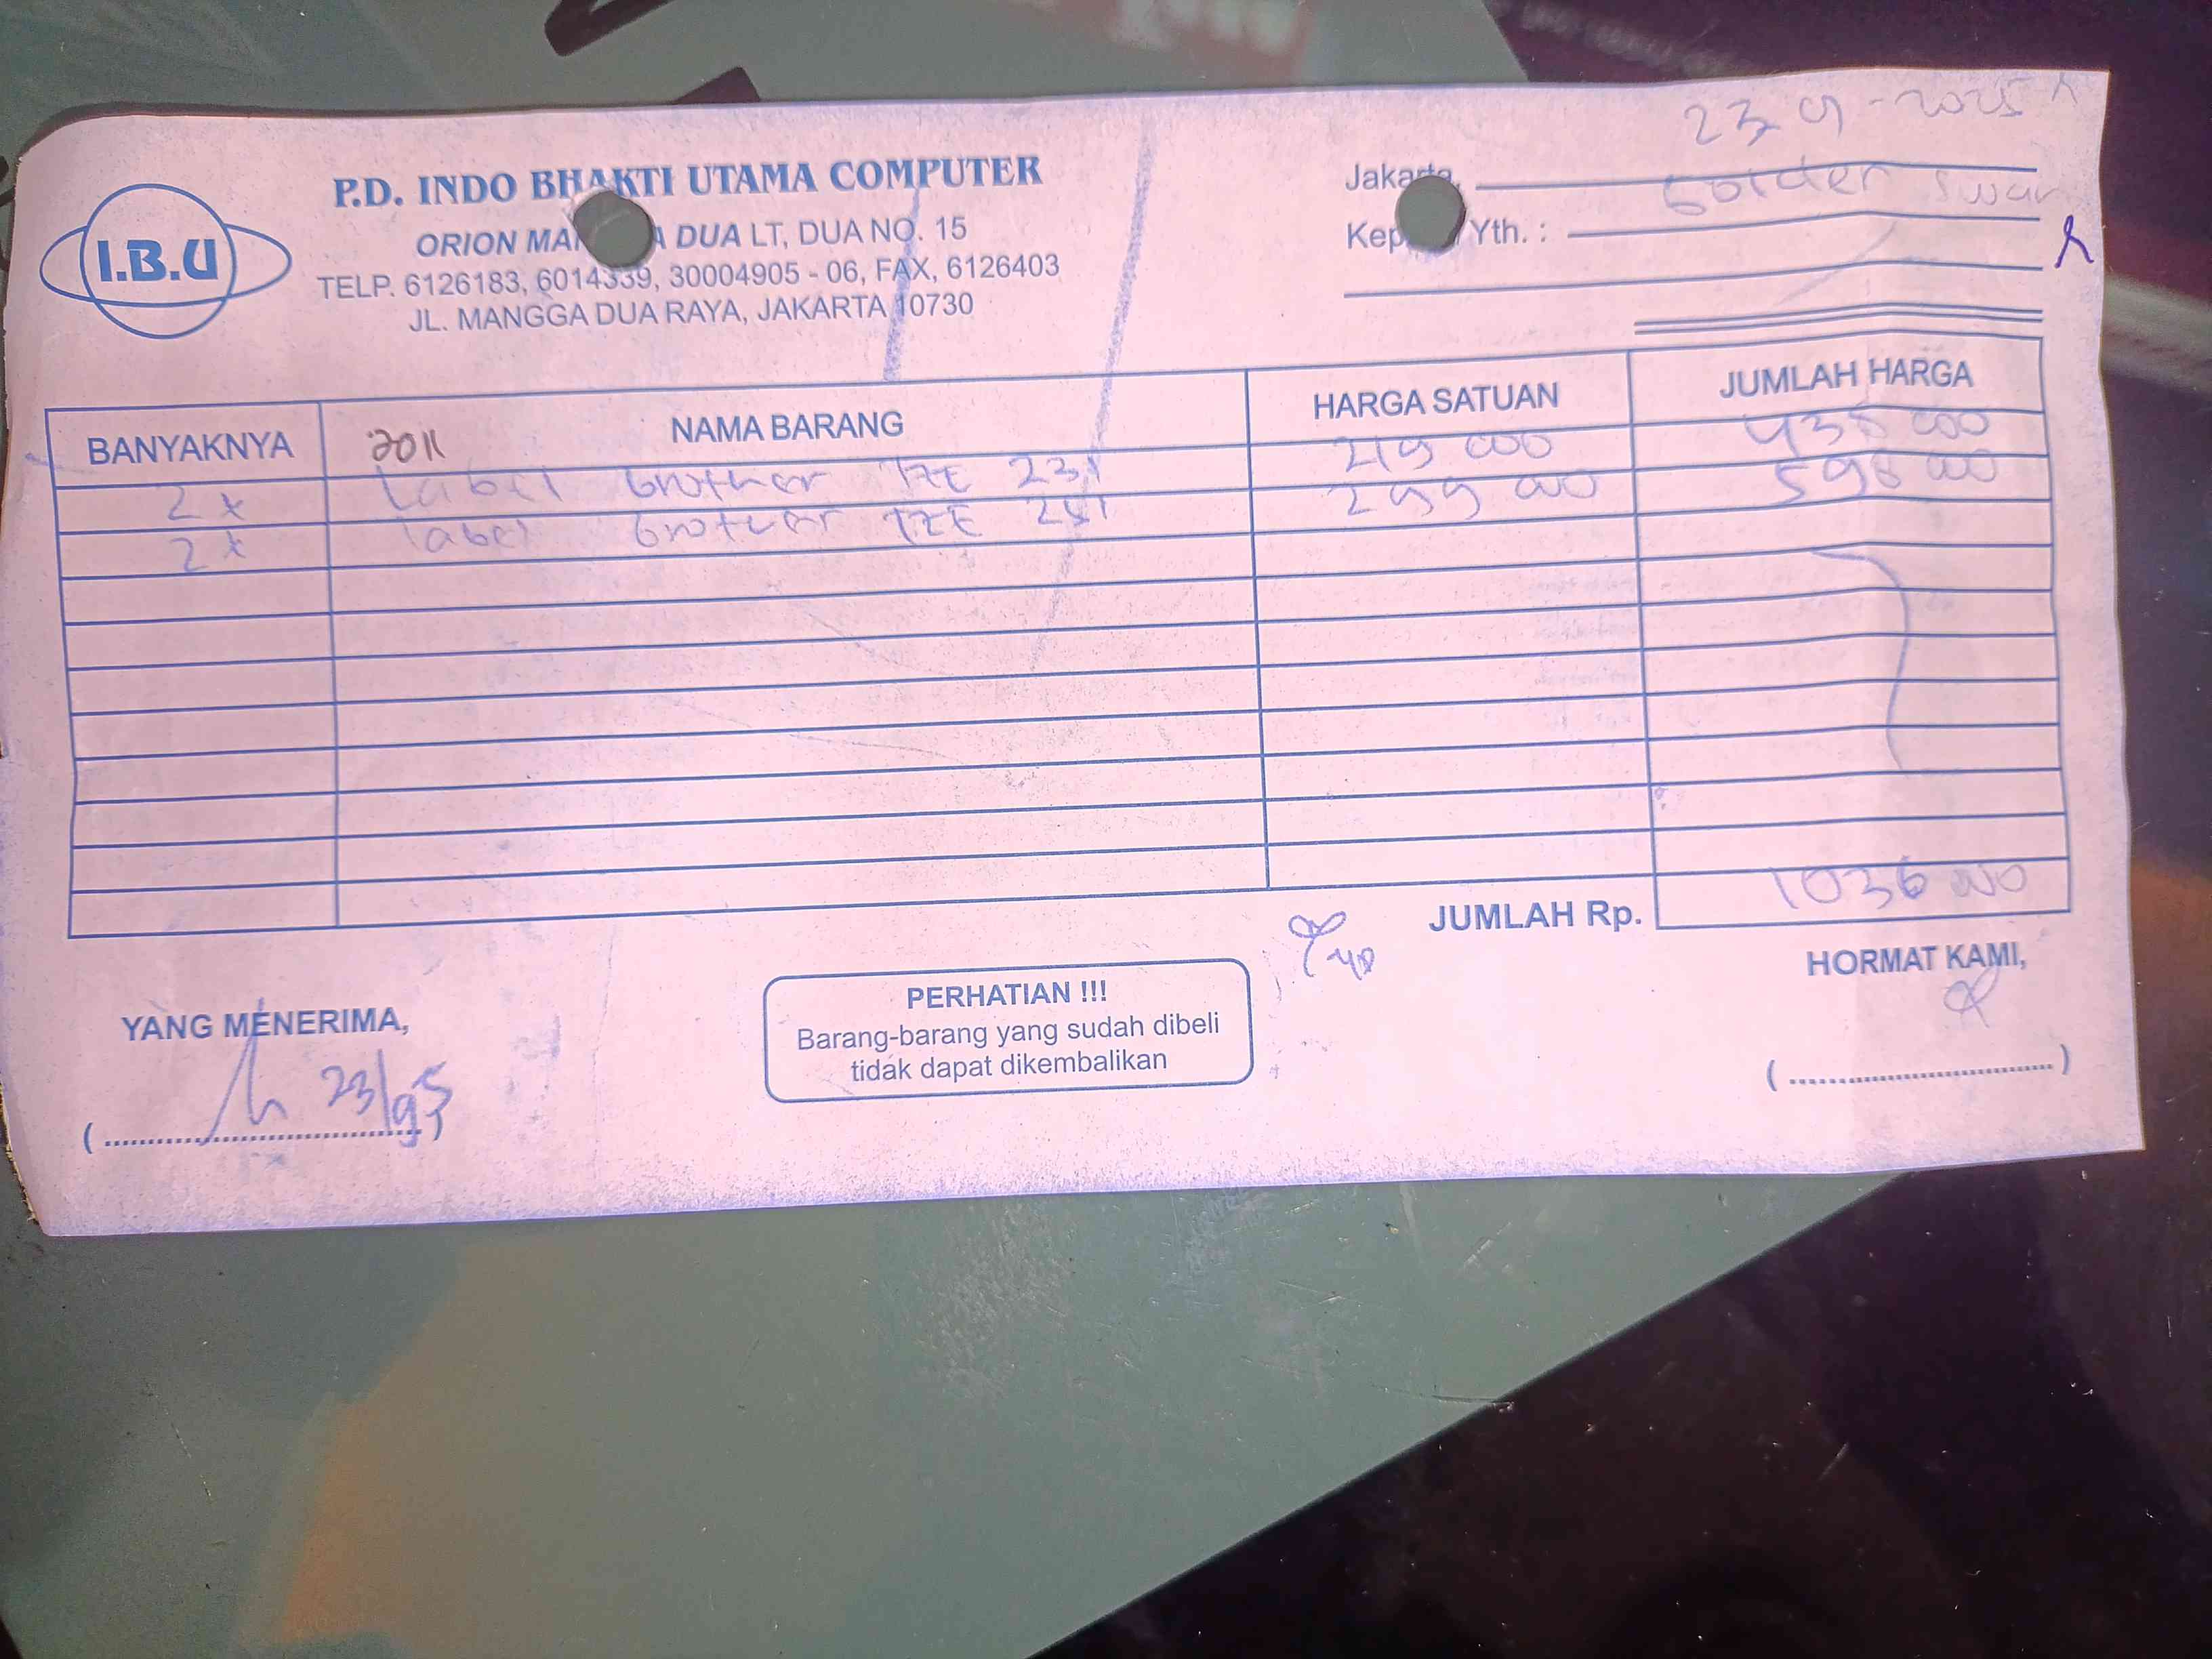 I.B.U
P.D. INDO BHAKTI UTAMA COMPUTER
ORION MA A DUA LT, DUA NO. 15
TELP. 6126183, 6014339, 30004905 - 06, FAX, 6126403
JL. MANGGA DUA RAYA, JAKARTA 10730
23 9 - 2025
Jakarta,
Kep Yth. : Golden Swan
BANYAKNYA NAMA BARANG HARGA SATUAN JUMLAH HARGA
2011
2 x Label brother TZE 231 219 000 438 000
2 x label brother TZE 251 299 000 598 000
JUMLAH Rp. 1036 000
YANG MENERIMA,
23/9 5
(....................)
PERHATIAN !!!
Barang-barang yang sudah dibeli
tidak dapat dikembalikan
HORMAT KAMI,
(....................)